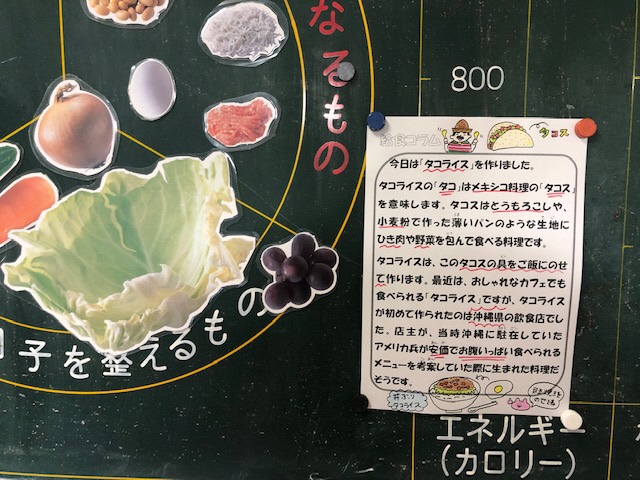 なるもの
子を整えるもの
800
給食コラム
タコス
今日は「タコライス」を作りました。
タコライスの「タコ」はメキシコ料理の「タコス」
を意味します。タコスはとうもろこしや、
小麦粉で作った薄いパンのような生地に
ひき肉や野菜を包んで食べる料理です。
タコライスは、このタコスの具をご飯にのせ
て作ります。最近は、おしゃれなカフェでも
食べられる「タコライス」ですが、タコライス
が初めて作られたのは沖縄県の飲食店でし
た。店主が、当時沖縄に駐在していた
アメリカ兵が安価でお腹いっぱい食べられる
メニューを考案していた際に生まれた料理だ
そうです。
タコライス
エネルギー
(カロリー)